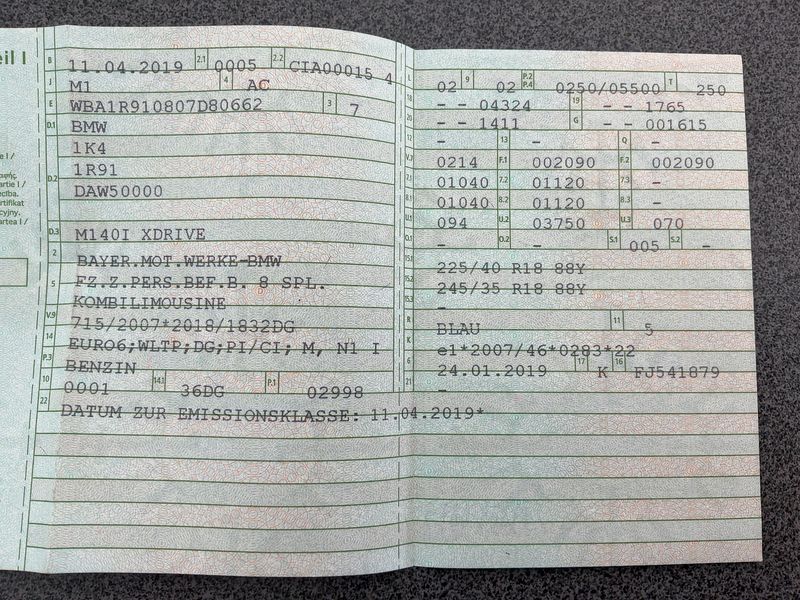 eil I
B 11.04.2019 2.1 0005 2.2 CIA00015 4
J M1 4 AC
E WBA1R910807D80662 3 7
D.1 BMW
1K4
D.2 1R91
DAW50000
D.3 M140I XDRIVE
2 BAYER.MOT.WERKE-BMW
5 FZ.Z.PERS.BEF.B. 8 SPL.
KOMBILIMOUSINE
V.9 715/2007*2018/1832DG
14 EURO6;WLTP;DG;PI/CI; M, N1 I
P.3 BENZIN
10 0001 14.1 36DG P.1 02998
22 DATUM ZUR EMISSIONSKLASSE: 11.04.2019*
L 02 9 02 P.2 P.4 0250/05500 T 250
18 - - 04324 19 - - 1765
20 - - 1411 G - - 001615
12 - 13 - Q -
V.7 0214 F.1 002090 F.2 002090
7.1 01040 7.2 01120 7.3 -
8.1 01040 8.2 01120 8.3 -
U.1 094 U.2 03750 U.3 070
O.1 - O.2 - S.1 005 S.2 -
15.1 225/40 R18 88Y
15.2 245/35 R18 88Y
15.3 -
R BLAU 11 5
K e1*2007/46*0283*22
6 24.01.2019 17 K 16 FJ541879
21 -